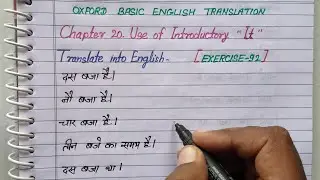 OXFORD BASIC ENGLISH TRANSLATION
Chapter 20. Use of Introductory "It"
Translate into English- [EXERCISE-92]
दस बजा है।
नौ बजा है।
चार बजा है।
तीन बजे का समय है।
दस बजा था।